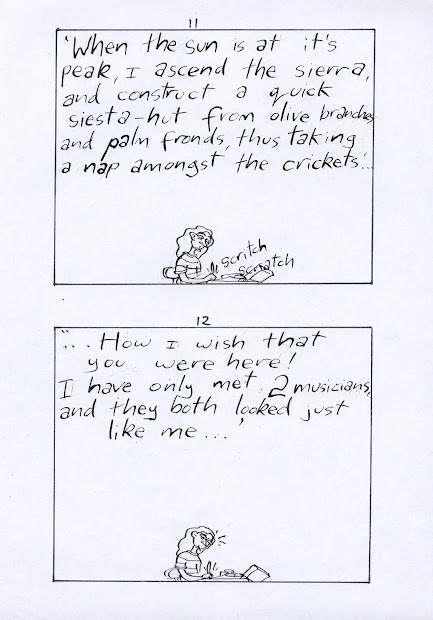 11
'When the sun is at it's
peak, I ascend the sierra,
and construct a quick
siesta-hut from olive branches
and palm fronds, thus taking
a nap amongst the crickets'...
scritch
scratch
12
"... How I wish that
you were here!
I have only met 2 musicians,
and they both looked just
like me...'